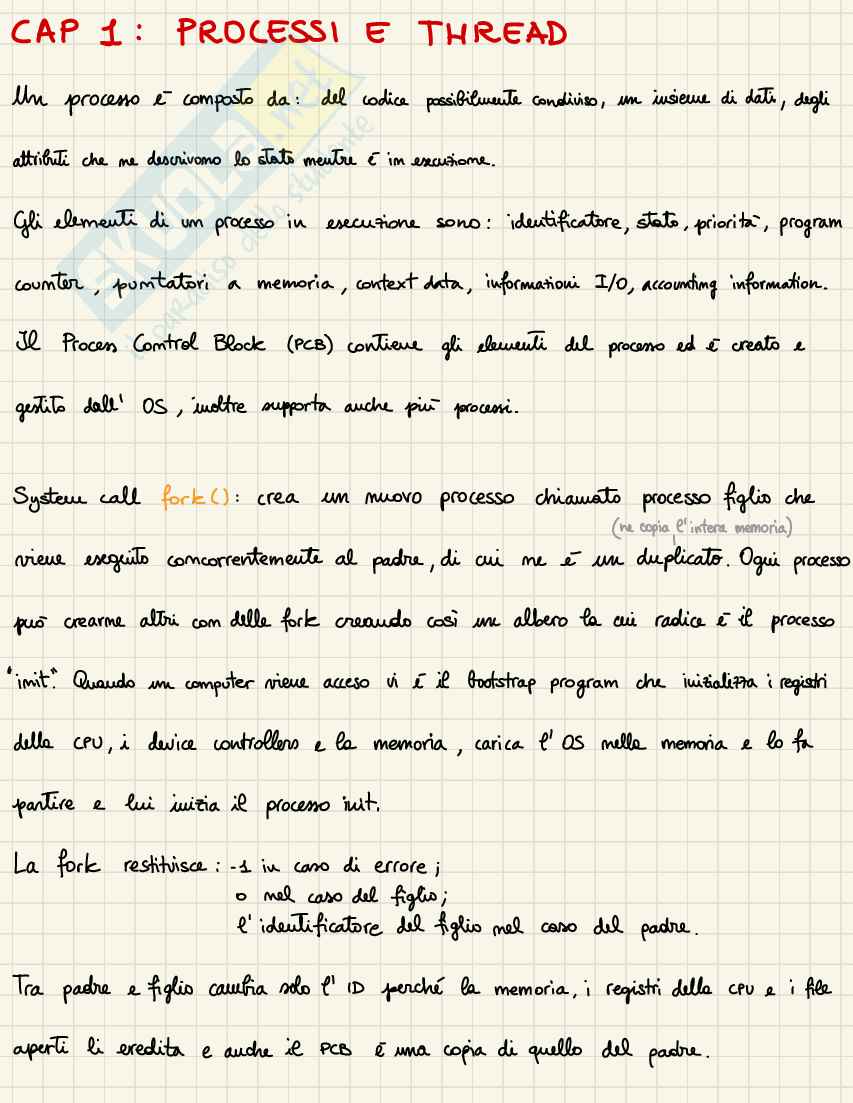 CAP 1: PROCESSI E THREAD
Un processo è composto da: del codice possibilmente condiviso, un insieme di dati, degli
attributi che ne descrivono lo stato mentre è in esecuzione.
Gli elementi di un processo in esecuzione sono: identificatore, stato, priorità, program
counter, puntatori a memoria, context data, informazioni I/O, accounting information.
Il Process Control Block (PCB) contiene gli elementi del processo ed è creato e
gestito dall' OS, inoltre supporta anche più processi.
System call fork(): crea un nuovo processo chiamato processo figlio che
(ne copia l'intera memoria)
viene eseguito concorrentemente al padre, di cui ne è un duplicato. Ogni processo
può crearne altri con delle fork creando così un albero la cui radice è il processo
"init". Quando un computer viene acceso vi è il bootstrap program che inizializza i registri
della CPU, i device controllers e la memoria, carica l' OS nella memoria e lo fa
partire e lui inizia il processo init.
La fork restituisce: -1 in caso di errore;
0 nel caso del figlio;
l'identificatore del figlio nel caso del padre.
Tra padre e figlio cambia solo l' ID perché la memoria, i registri della CPU e i file
aperti li eredita e anche il PCB è una copia di quello del padre.
SKUOLA.net
il paradiso dello studente